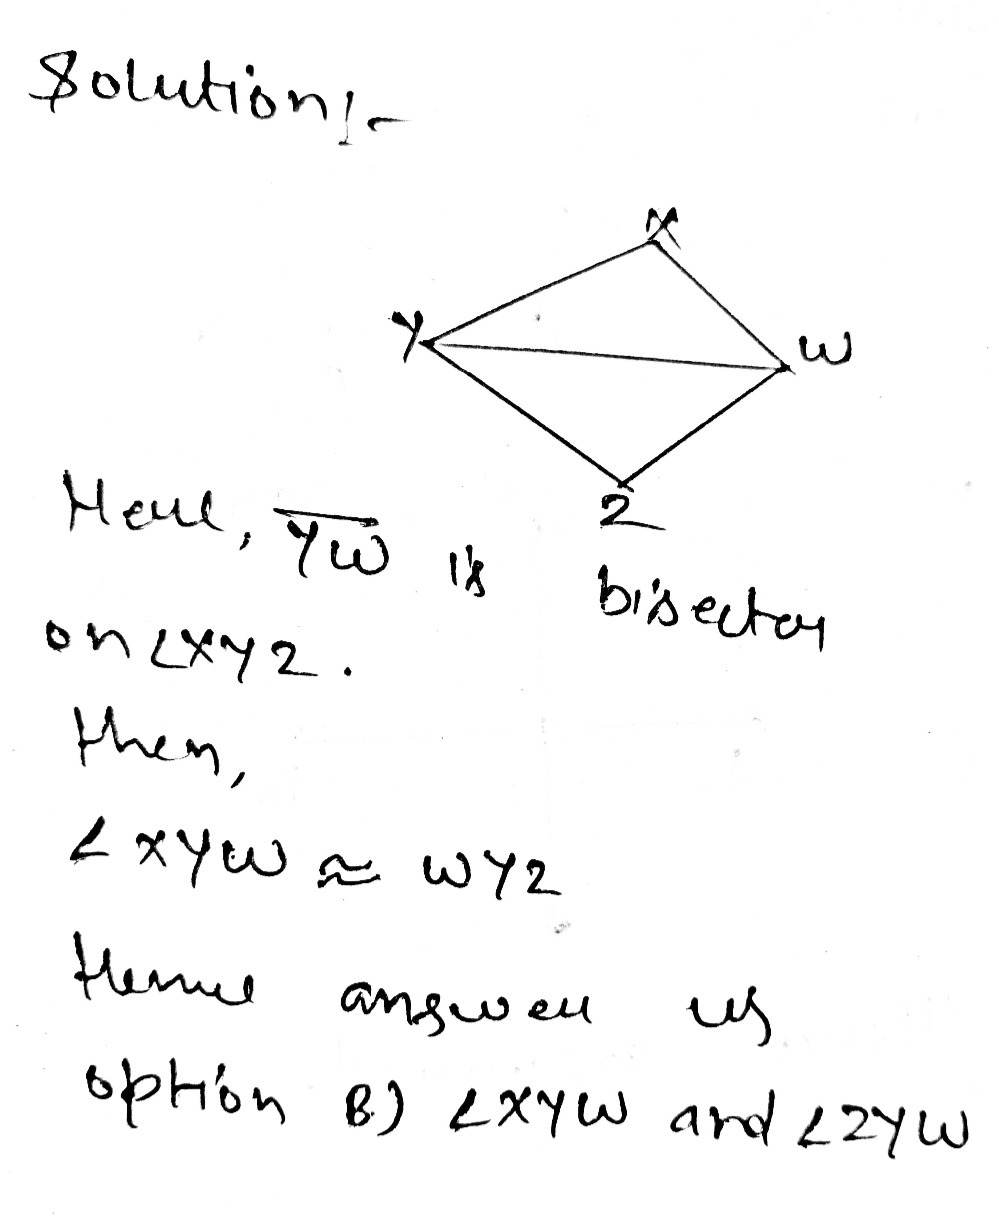 Solution:-
X
Y
W
Z
Here, YW is bisector
on ∠XYZ.
then,
∠XYW ≅ WYZ
Hence answer is
option B) ∠XYW and ∠ZYW